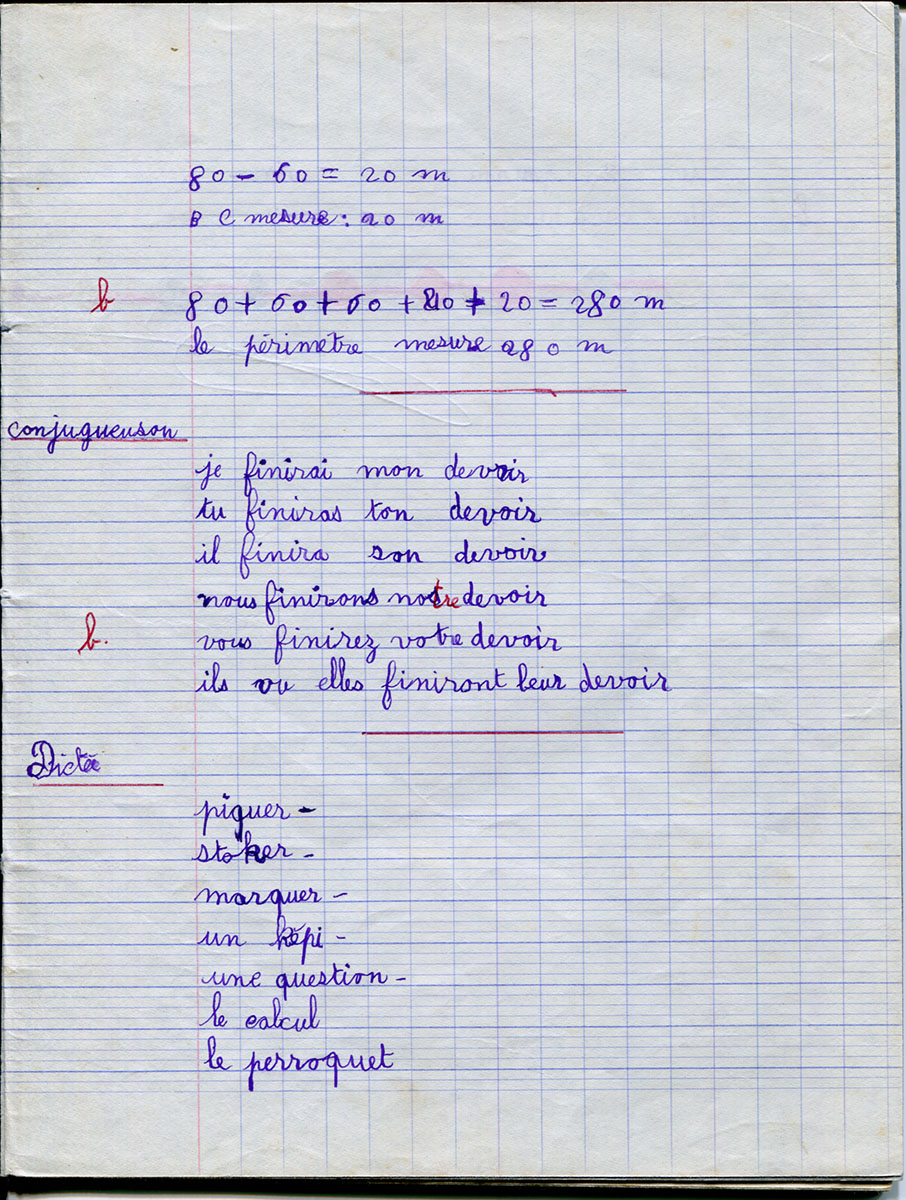 80 - 60 = 20 m
B C mesure : 20 m
b 80 + 60 + 60 + 20 = 280 m
le périmètre mesure 280 m
conjugueuson
je finirai mon devoir
tu finiras ton devoir
il finira son devoir
nous finirons notre devoir
b. vous finirez votre devoir
ils ou elles finiront leur devoir
Dictée
piquer -
stoker -
marquer -
un képi -
une question -
le calcul
le perroquet